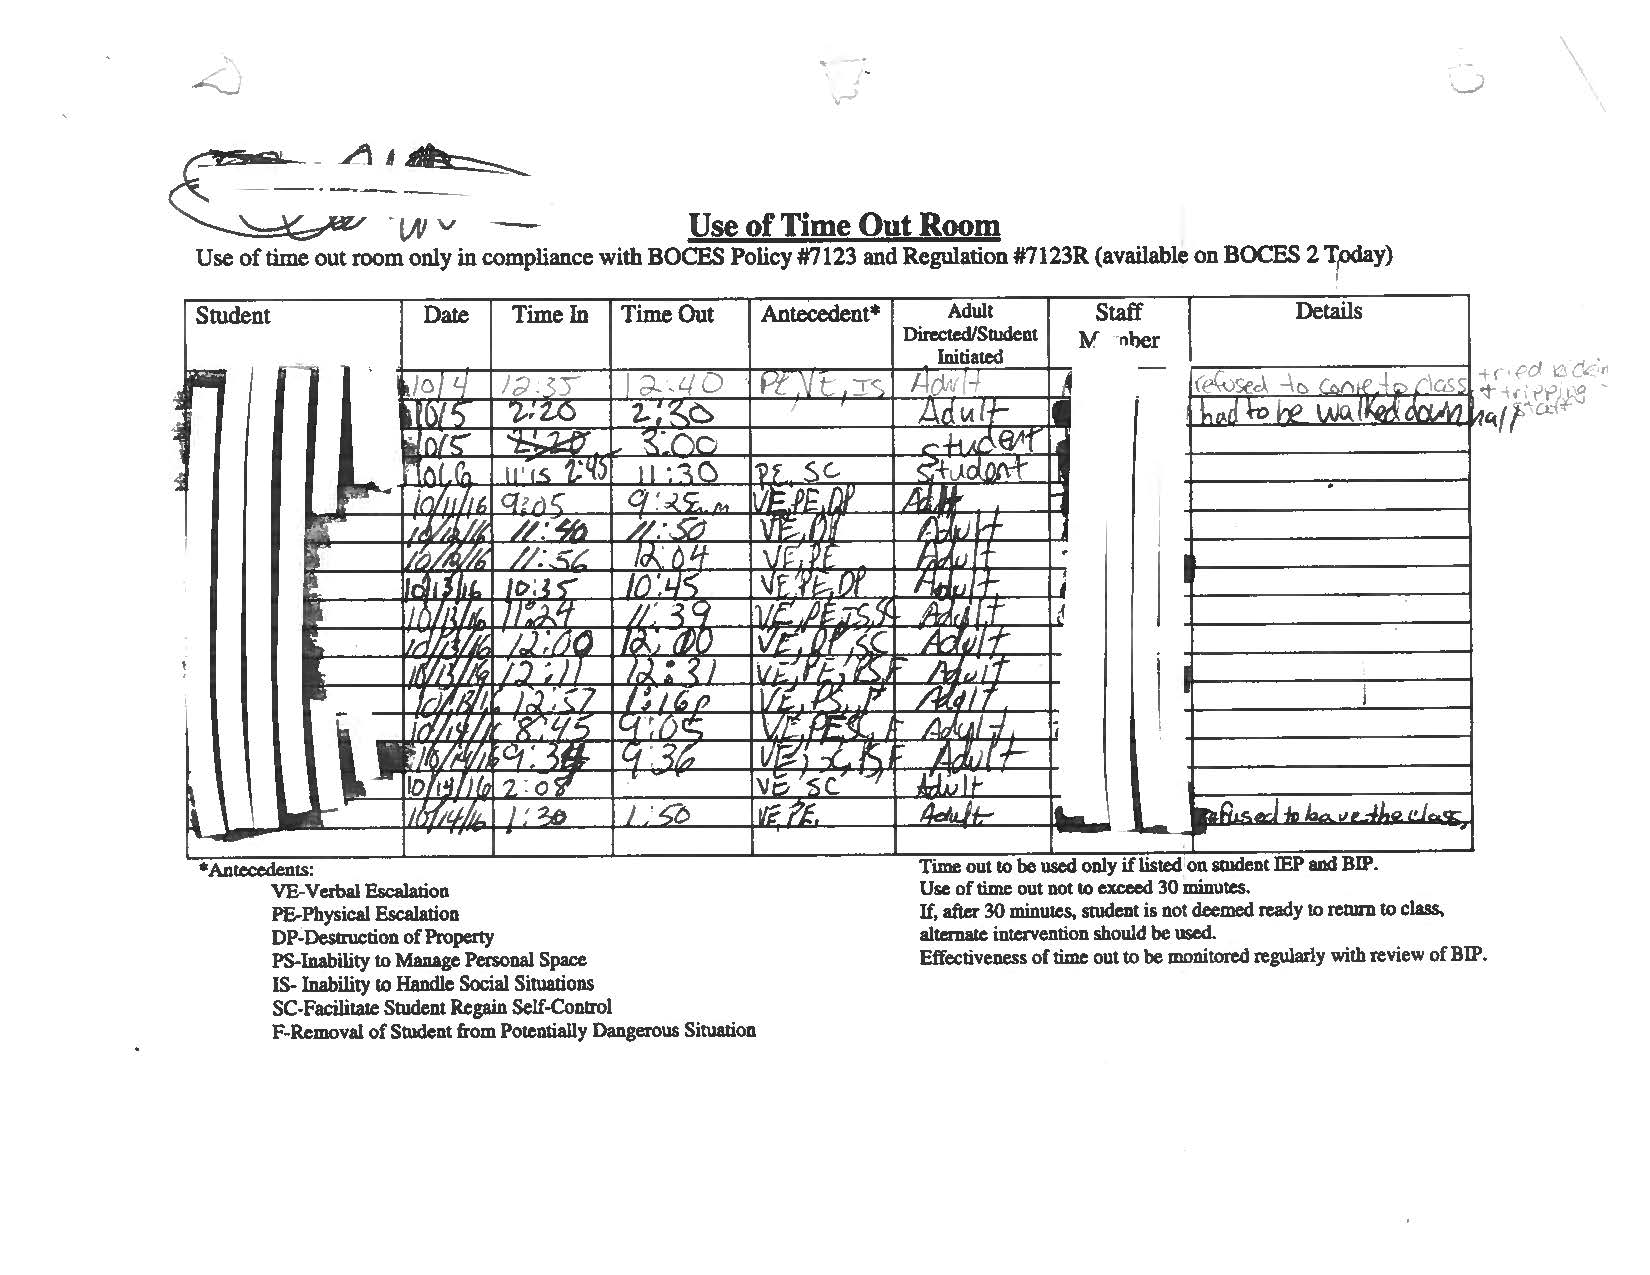 Use of Time Out Room
Use of time out room only in compliance with BOCES Policy #7123 and Regulation #7123R (available on BOCES 2 Today)
Student Date Time In Time Out Antecedent* Adult Directed/Student Initiated Staff Details
10/4 12:35 12:40 PE, VE, IS Adult refused to come to class tried
10/5 2:20 2:30 Adult had to be walked down hall
10/5 3:00 student
11:15 2:45 11:30 PE, SC Student
10/11/16 9:05 9:25 VE, PE, DP Adult
10/12/16 11:40 11:50 Adult
11:56 12:04 VE, PE Adult
10/13/16 10:35 10:45 VE, PE, DP Adult
10/13/16 11:24 11:39 Adult
10/13/16 12:00 12:00 VE, DP, SC Adult
10/13/16 12:11 12:31 Adult
12:57 1:16p Adult
10/14/16 8:45 9:05 Adult
10/14/16 9:36 Adult
10/14/16 2:08 VE SC Adult
10/14/16 1:30 1:50 VE, PE. Adult. refused to leave the class.
*Antecedents:
VE-Verbal Escalation
PE-Physical Escalation
DP-Destruction of Property
PS-Inability to Manage Personal Space
IS- Inability to Handle Social Situations
SC-Facilitate Student Regain Self-Control
F-Removal of Student from Potentially Dangerous Situation
Time out to be used only if listed on student IEP and BIP.
Use of time out not to exceed 30 minutes.
If, after 30 minutes, student is not deemed ready to return to class,
alternate intervention should be used.
Effectiveness of time out to be monitored regularly with review of BIP.